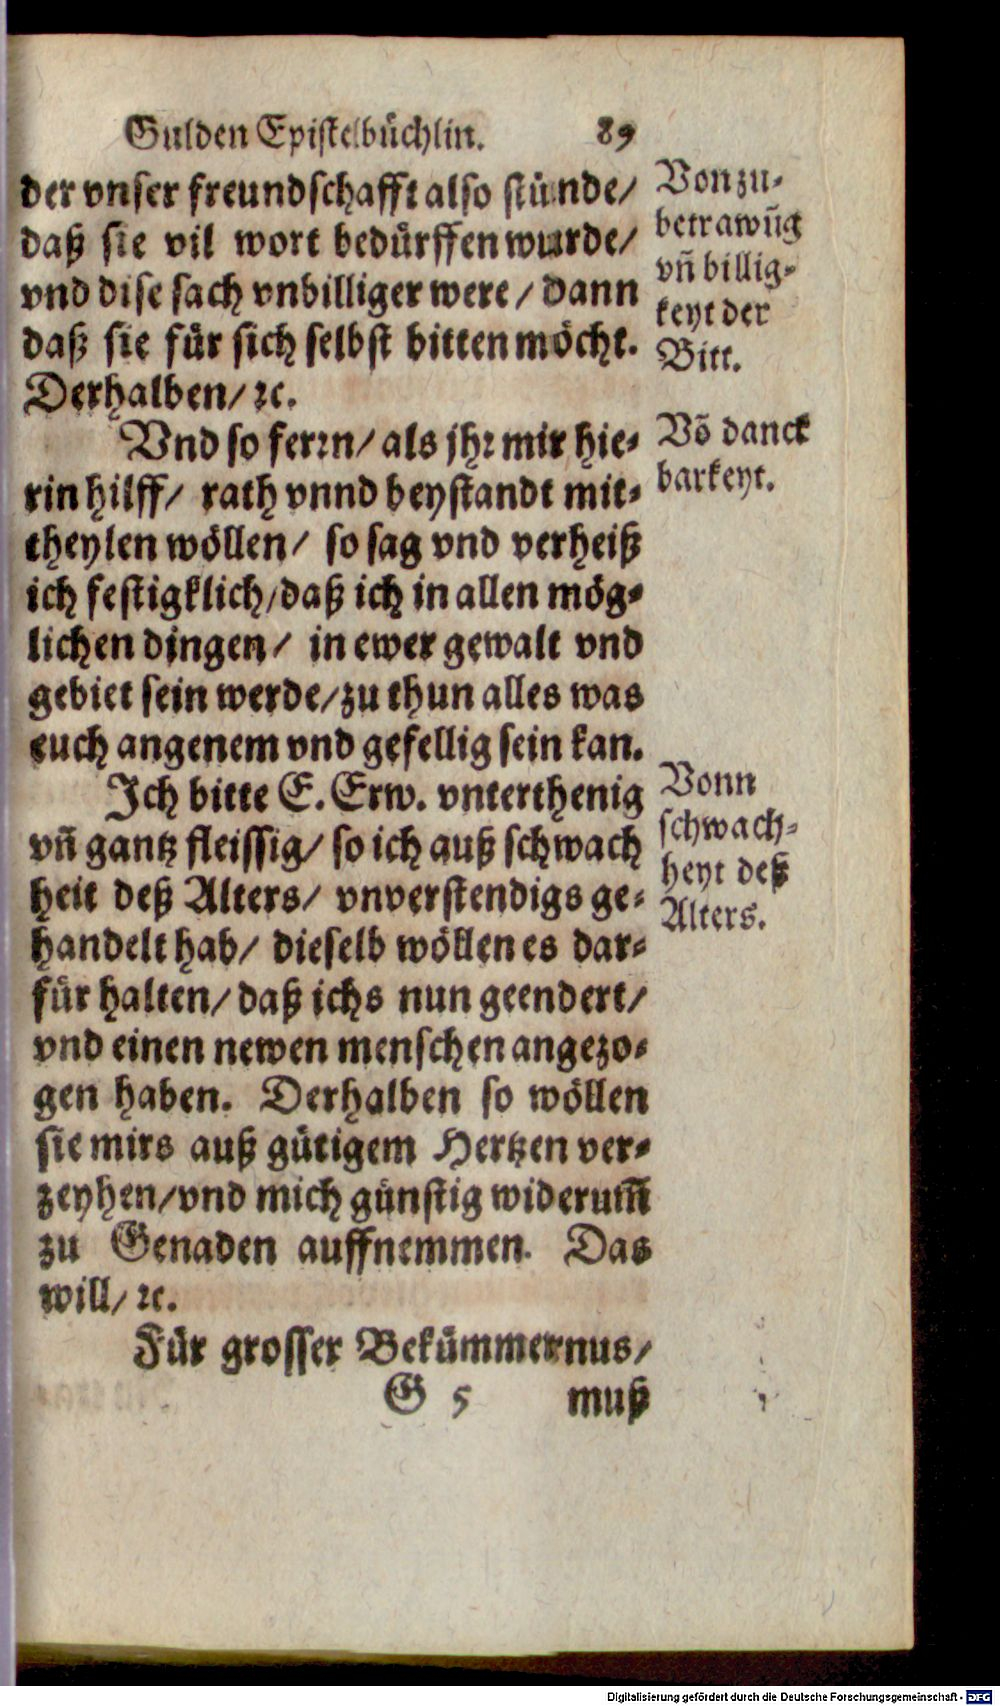 Gulden Epistelbüchlin. 89
der vnser freundschafft also stünde/
daß sie vil wort bedürffen wurde/
vnd dise sach vnbilliger were/ dann
daß sie für sich selbst bitten möcht.
Derhalben/ ꝛc.
Vnd so ferrn/ als jhr mir hie-
rin hilff/ rath vnnd beystandt mit-
theylen wöllen/ so sag vnd verheiß
ich festigklich/ daß ich in allen mög-
lichen dingen/ in ewer gewalt vnd
gebiet sein werde/ zu thun alles was
euch angenem vnd gefellig sein kan.
Ich bitte E. Erw. vnterthenig
vñ gantz fleissig/ so ich auß schwach
heit deß Alters/ vnverstendigs ge-
handelt hab/ dieselb wöllen es dar-
für halten/ daß ichs nun geendert/
vnd einen newen menschen angezo-
gen haben. Derhalben so wöllen
sie mirs auß gütigem Hertzen ver-
zeyhen/ vnd mich günstig widerum̃
zu Genaden auffnemmen. Das
will/ ꝛc.
Für grosser Bekümmernus/
G 5 muß
Von zu-
betrawũg
vñ billig-
keyt der
Bitt.
Võ danck
barkeyt.
Vonn
schwach-
heyt deß
Alters.
Digitalisierung gefördert durch die Deutsche Forschungsgemeinschaft - DFG